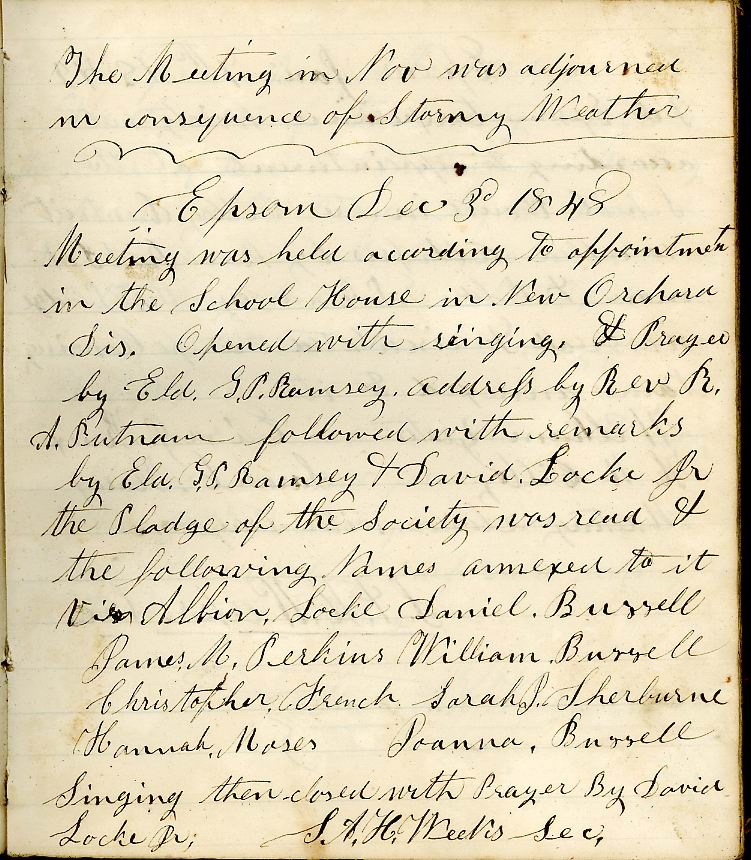 The Meeting in Nov was adjourned
in consequence of Stormy Weather
Epsom Dec 3d 1848
Meeting was held according to appointment
in the School House in New Orchard
Dis. Opened with singing, & Prayer
by Eld. G.P. Ramsey. address by Rev R.
A. Putnam followed with remarks
by Eld. G.P. Ramsey & David. Locke Jr
the Pladge of the Society was read &
the following Names annexed to it
Viz Albion, Locke Daniel. Burrell
James, M, Perkins William. Burrell
Christopher, French. Sarah J. Sherburne
Hannah, Moses Joanna, Burrell
Singing then closed with Prayer By David
Locke Jr; S.A.H. Weeks Sec,